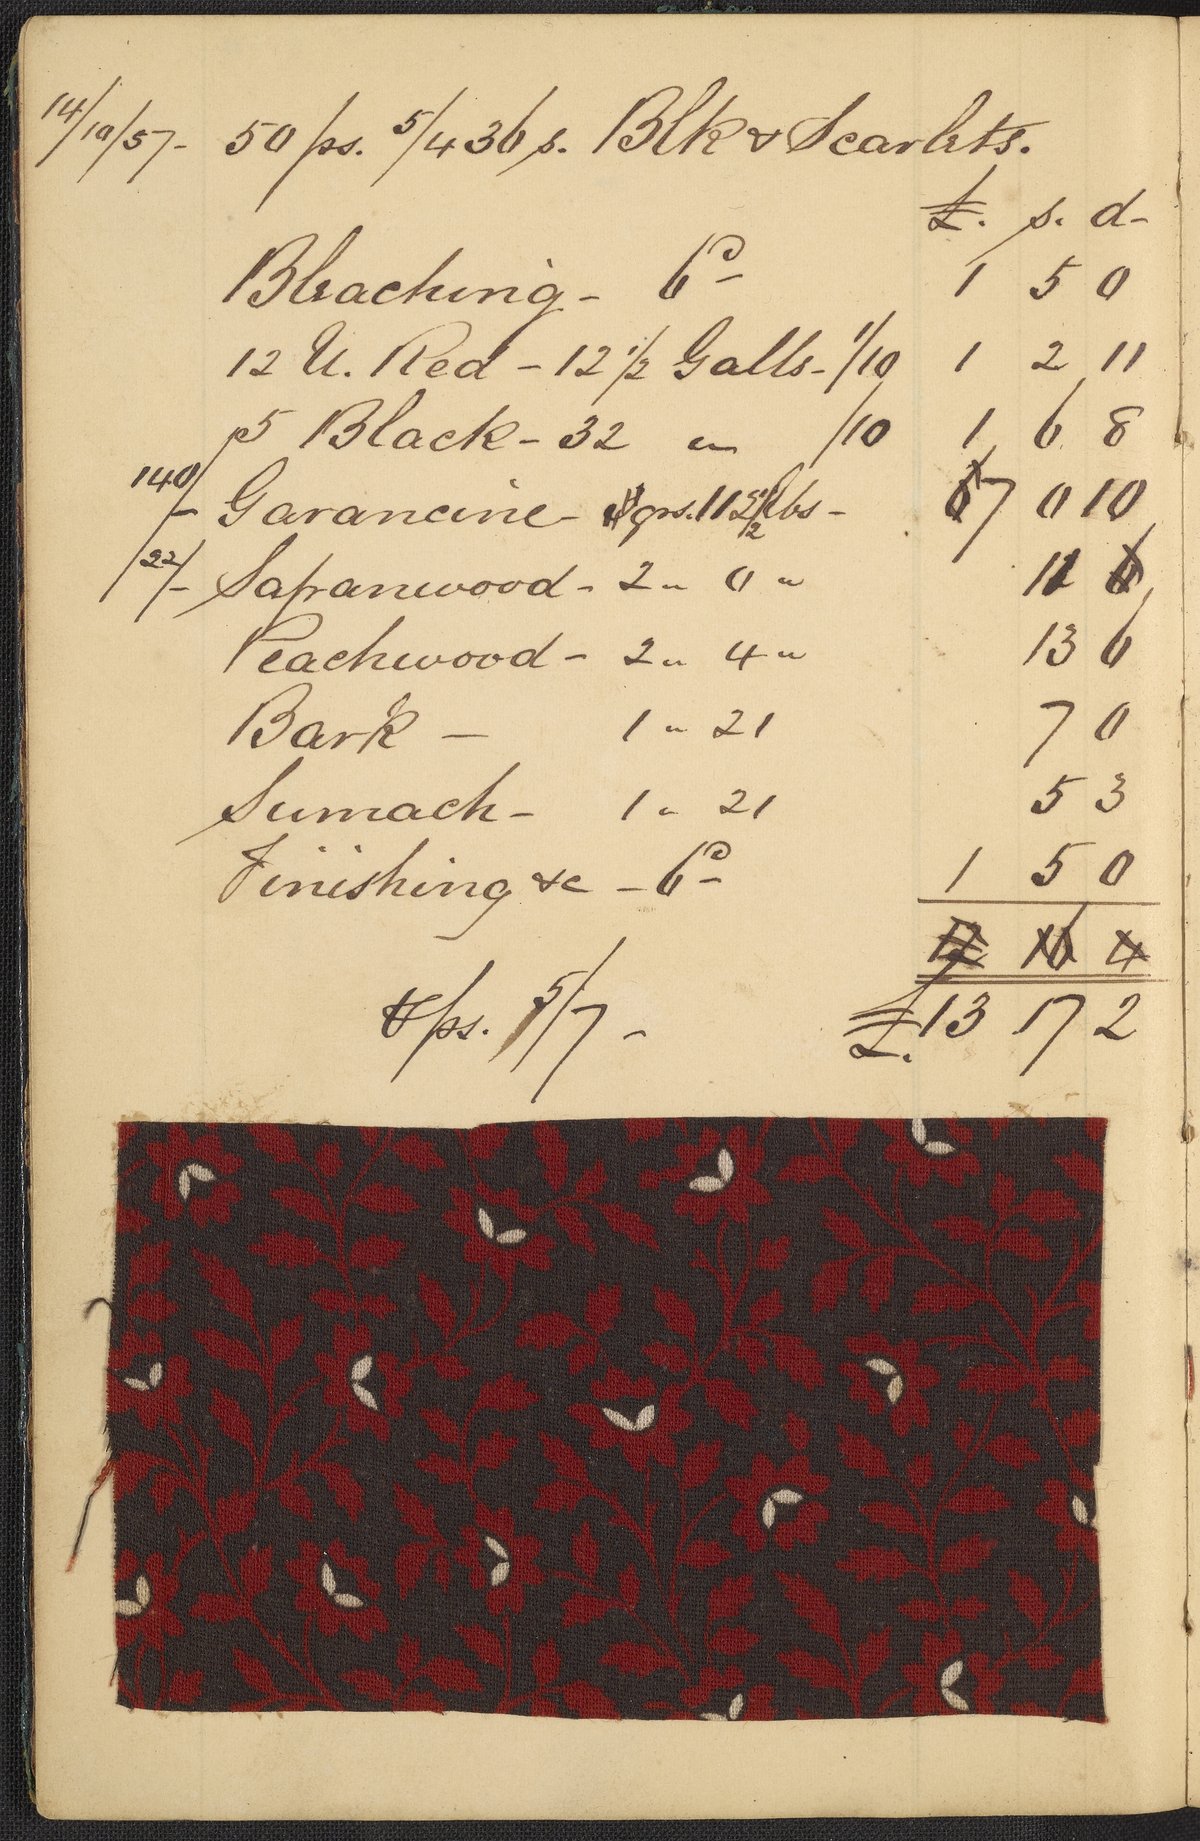 14/10/57- 50 ps. 5/4 36s. Blk & Scarlets.
£. s. d-
Bleaching - 6D- 1 5 0
12 U. Red - 12 1/2 Galls - 1/10 1 2 11
p5 Black - 32 " /10 1 6 8
140/- Garancine - qrs. 11 lbs - 7 0 10
22/- Sapanwood - 2 " 0 " 11
Peachwood - 2 " 4 " 13 6
Bark - 1 " 21 7 0
Sumach - 1 " 21 5 3
Finishing &c - 6D- 1 5 0
12 16 4
ps. 5/7 - £. 13 17 2